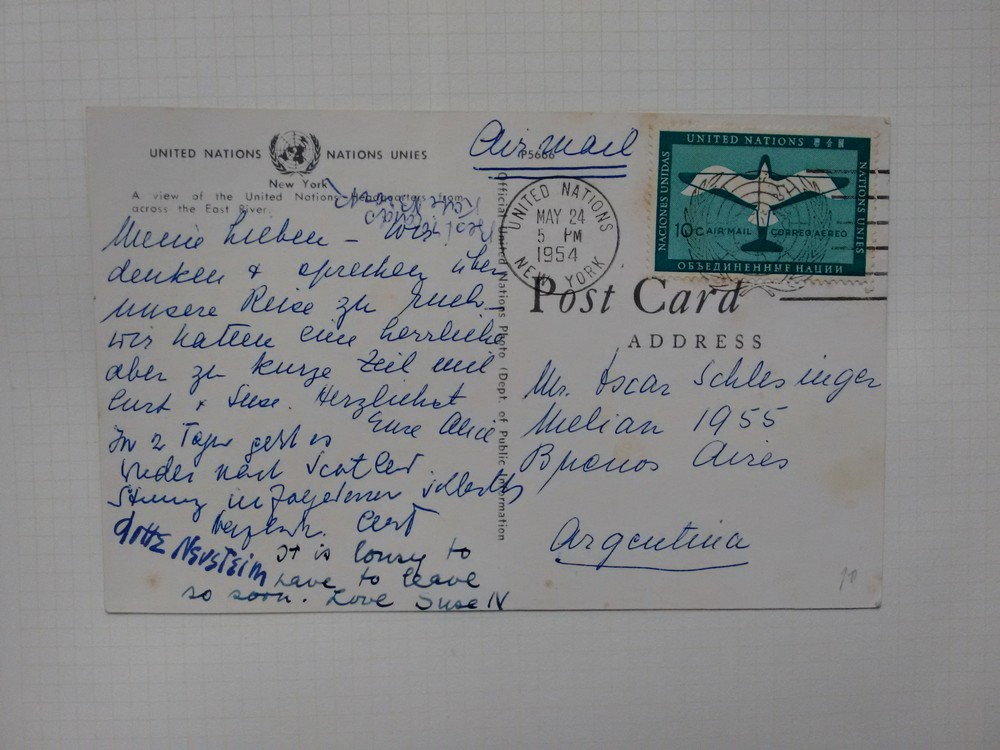 UNITED NATIONS NATIONS UNIES
New York
A view of the United Nations Headquarters from
across the East River.
P5666
Air mail
Meine Lieben – Wir
denken & sprechen über
unsere Reise zu
wir hatten eine herrliche
aber zu kurze Zeit mit
Curt + Suse. Herzlichst
Eure Alice
In 2 Tagen geht es
wieder nach
Stimmung
Curt
It is lousy to
have to leave
so soon. Love Suse N
Official United Nations Photo (Dept. of Public Information
UNITED NATIONS
MAY 24
5 PM
1954
NEW YORK
UNITED NATIONS
NACIONES UNIDAS
NATIONS UNIES
10c AIR MAIL CORREO AEREO
ОБЪЕДИНЕННЫЕ НАЦИИ
Post Card
ADDRESS
Mr. Oscar Schlesinger
Melian 1955
Buenos Aires
Argentina
10